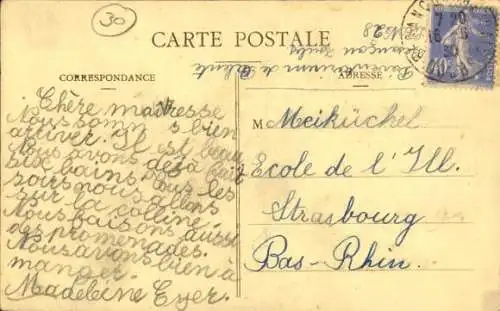 30
CARTE POSTALE
CORRESPONDANCE
ADRESSE
Chère maîtresse
Nous somm s bien
arriver. Il est beau
Nous avons déjà fait
six bains. Tous les
soirs nous allons
sur la colline.
Nous faisons aussi
des promenades.
Nous avons bien à
manger.
Madeleine Eyer.
M Meiküchel
Ecole de l'Ill
Strasbourg
Bas-Rhin.
Besançon Doubs